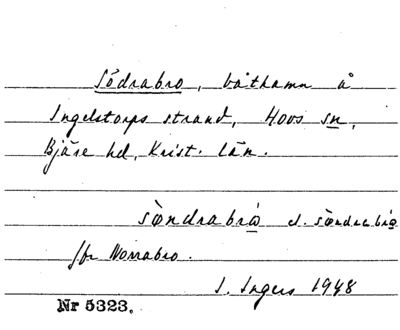 Södrabro, båthamn å
Ingelstorps strand, Hovs sn,
Bjäre hd, Krist. län.
sœ̀ndrabrώ̨ el. sœ̀ndrebrώ̨
/br Norrabro.
I. Ingers 1948
Nr 5323.